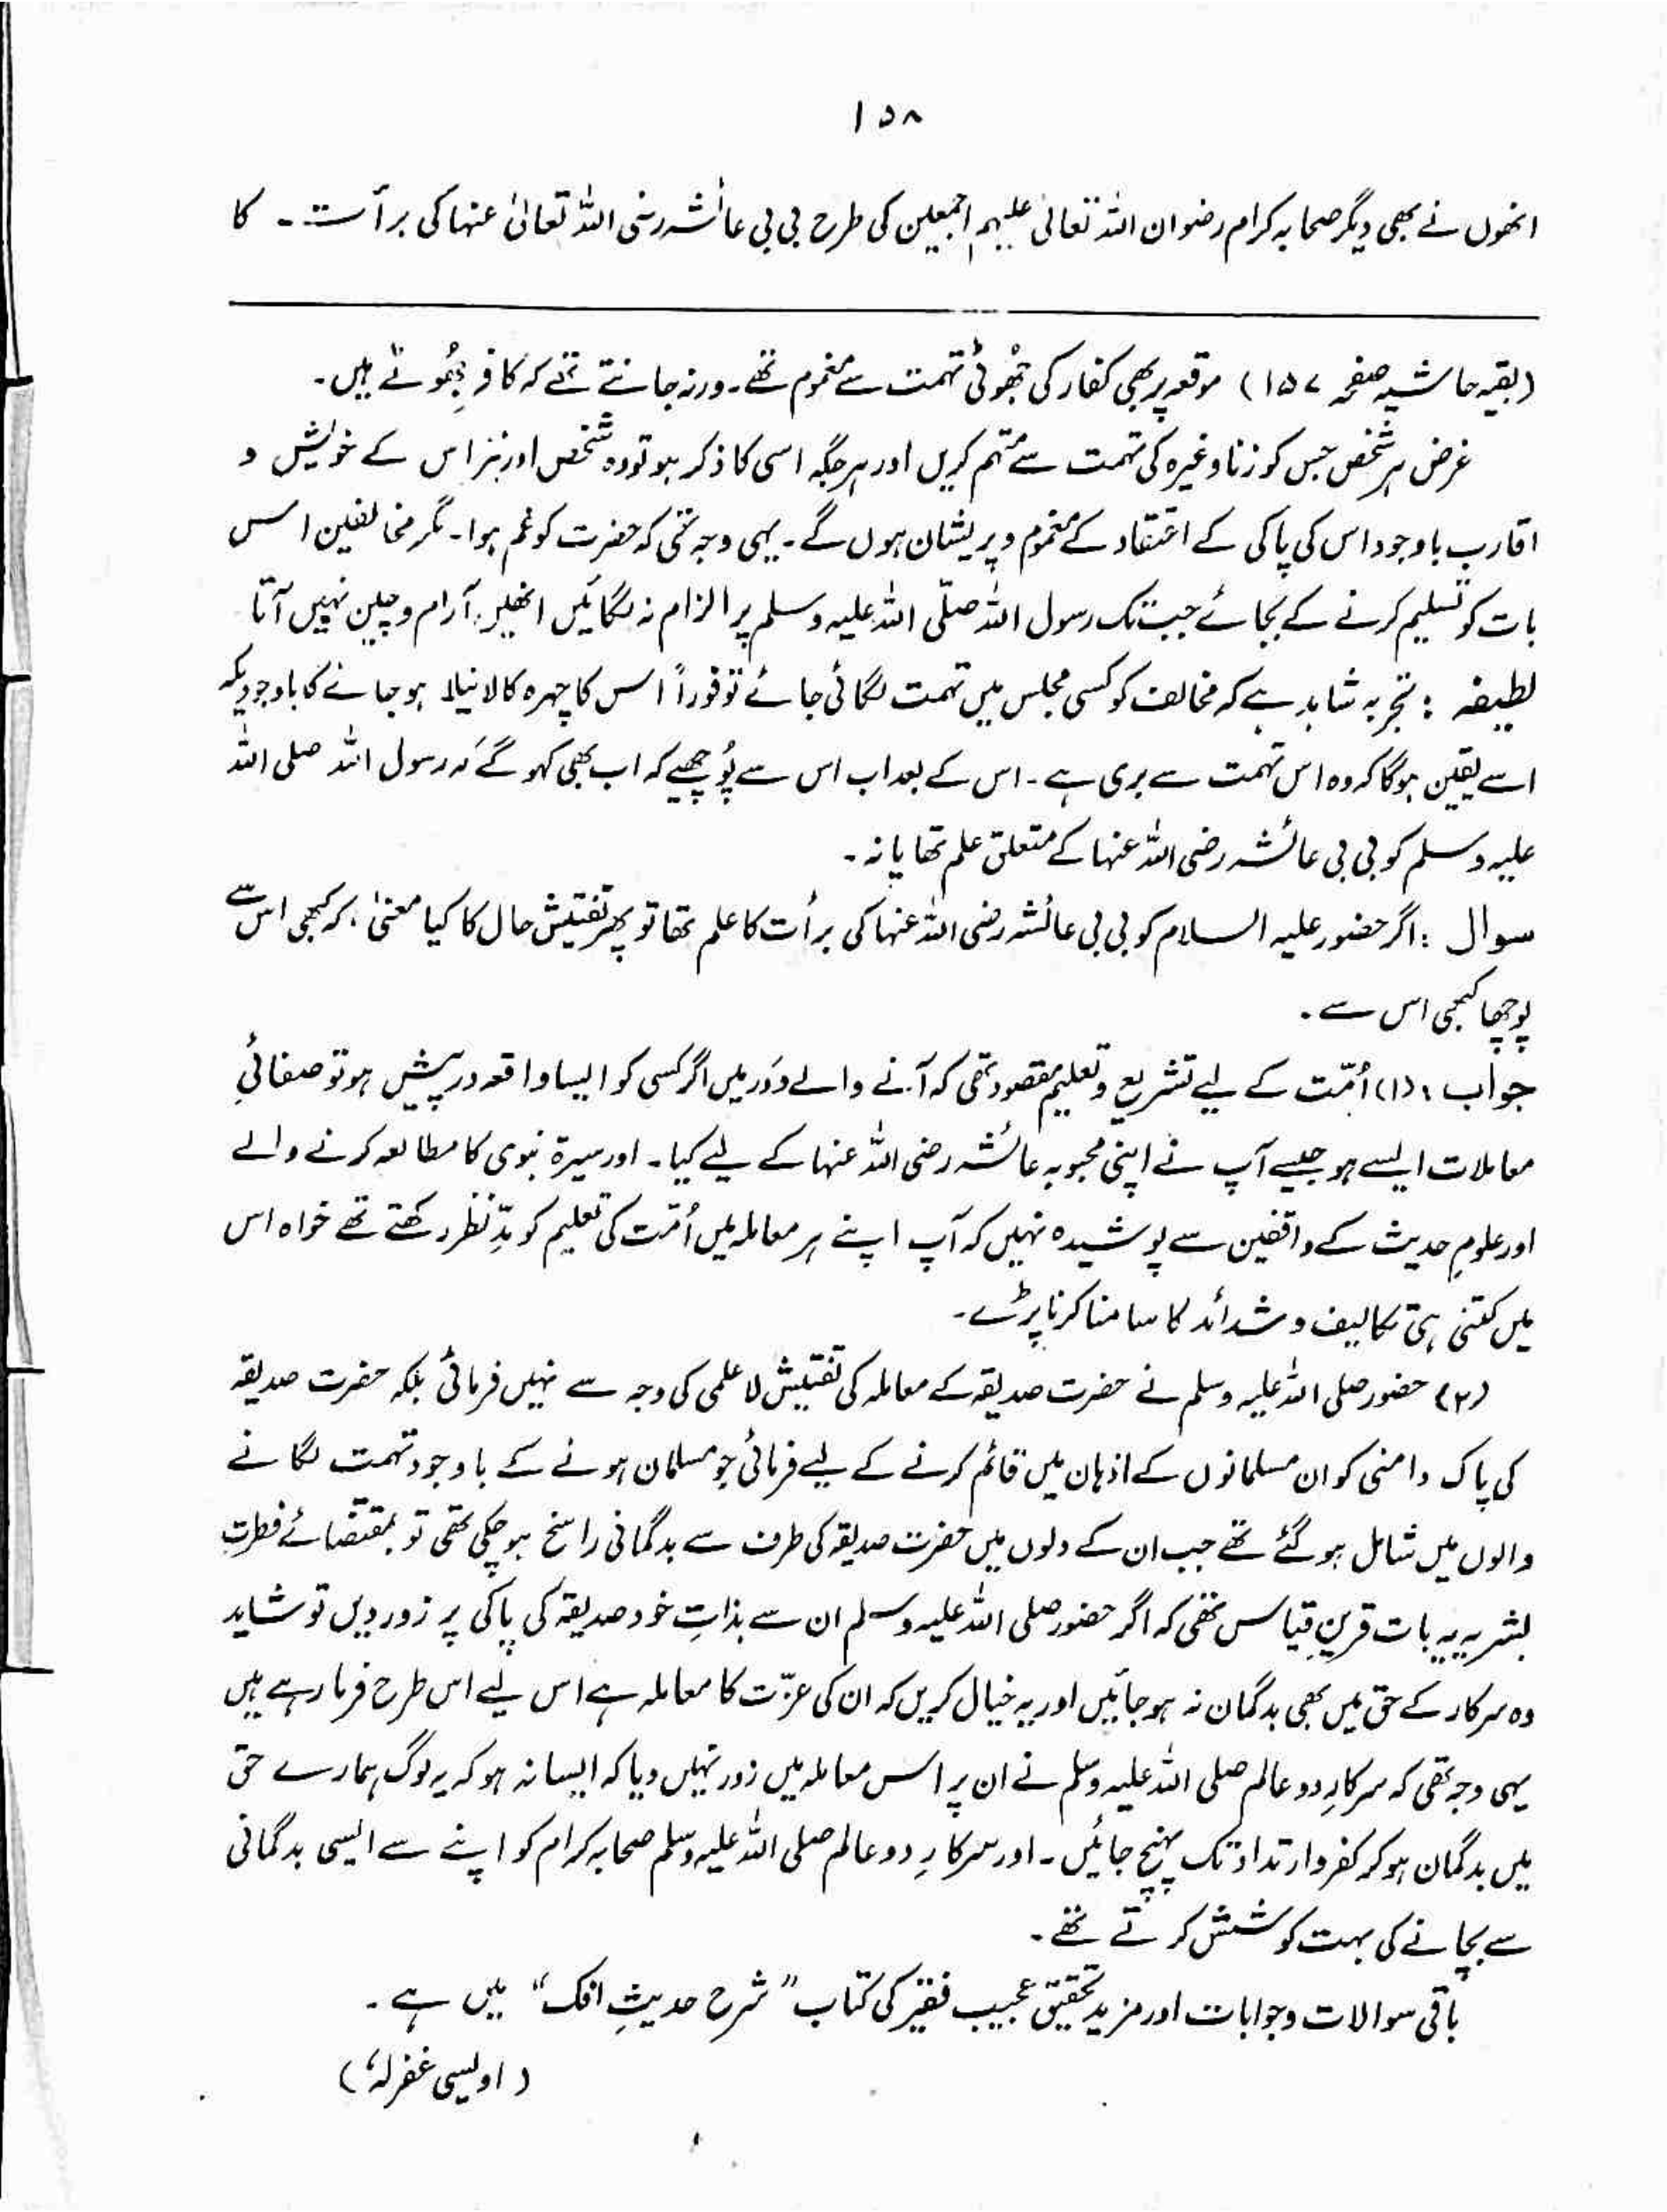 ۱۵۸
انھوں نے بھی دیگر صحابہ کرام رضوان اللہ تعالیٰ علیہم اجمعین کی طرح بی بی عائشہ رضی اللہ تعالیٰ عنہا کی برأت ۔ کا
(بقیہ حاشیہ صفحہ ۱۵۷) موقعہ پر بھی کفار کی جھُوٹی تہمت سے مغموم تھے۔ ورنہ جانتے تھے کہ کافر جھُوٹے ہیں۔
غرض ہر شخص جس کو زنا وغیرہ کی تہمت سے متہم کریں اور ہر جگہ اسی کا ذکر ہو تو وہ شخص اور نیز اس کے خویش و
اقارب باوجود اس کی پاکی کے اعتقاد کے مغموم و پریشان ہوں گے۔ یہی وجہ تھی کہ حضرت کو غم ہوا۔ مگر مخالفین اس
بات کو تسلیم کرنے کے بجائے جب تک رسول اللہ صلّی اللہ علیہ وسلم پر الزام نہ لگائیں انھیں آرام و چین نہیں آتا
لطیفہ : تجربہ شاہد ہے کہ مخالف کو کسی مجلس میں تہمت لگائی جائے تو فوراً اس کا چہرہ کالا نیلا ہو جانے گا باوجودیکہ
اسے یقین ہوگا کہ وہ اس تہمت سے بری ہے۔ اس کے بعد اب اس سے پُوچھیے کہ اب بھی کہو گے کہ رسول اللہ صلی اللہ
علیہ وسلم کو بی بی عائشہ رضی اللہ عنہا کے متعلق علم تھا یا نہ۔
سوال : اگر حضور علیہ السلام کو بی بی عائشہ رضی اللہ عنہا کی برأت کا علم تھا تو پھر تفتیش حال کا کیا معنیٰ، کہ کبھی اس سے
پوچھا کبھی اس سے۔
جواب : (۱) اُمّت کے لیے تشریع و تعلیم مقصود تھی کہ آنے والے دَور میں اگر کسی کو ایسا واقعہ درپیش ہو تو صفائیِ
معاملات ایسے ہو جیسے آپ نے اپنی محبوبہ عائشہ رضی اللہ عنہا کے لیے کیا۔ اور سیرۃ نبوی کا مطالعہ کرنے والے
اور علومِ حدیث کے واقفین سے پوشیدہ نہیں کہ آپ اپنے ہر معاملہ میں اُمّت کی تعلیم کو مدِّنظر رکھتے تھے خواہ اس
میں کتنی ہی تکالیف و شدائد کا سامنا کرنا پڑے۔
(۲) حضور صلی اللہ علیہ وسلم نے حضرت صدیقہ کے معاملہ کی تفتیش لاعلمی کی وجہ سے نہیں فرمائی بلکہ حضرت صدیقہ
کی پاک دامنی کو ان مسلمانوں کے اذہان میں قائم کرنے کے لیے فرمائی جو مسلمان ہونے کے باوجود تہمت لگانے
والوں میں شامل ہو گئے تھے جب ان کے دلوں میں حضرت صدیقہ کی طرف سے بدگمانی راسخ ہو چکی تھی تو بمقتضائے فطرتِ
بشریہ یہ بات قرینِ قیاس تھی کہ اگر حضور صلی اللہ علیہ وسلم ان سے بذاتِ خود صدیقہ کی پاکی پر زور دیں تو شاید
وہ سرکار کے حق میں بھی بدگمان نہ ہو جائیں اور یہ خیال کریں کہ ان کی عزّت کا معاملہ ہے اس لیے اس طرح فرما رہے ہیں
یہی وجہ تھی کہ سرکارِ دو عالم صلی اللہ علیہ وسلم نے ان پر اس معاملہ میں زور نہیں دیا کہ ایسا نہ ہو کہ یہ لوگ ہمارے حق
میں بدگمان ہو کر کفر و ارتداد تک پہنچ جائیں۔ اور سرکارِ دو عالم صلی اللہ علیہ وسلم صحابہ کرام کو اپنے سے ایسی بدگمانی
سے بچانے کی بہت کوشش کرتے تھے۔
باقی سوالات و جوابات اور مزید تحقیق عجیب فقیر کی کتاب "شرح حدیثِ افک" میں ہے۔
(اویسی غفرلہٗ)